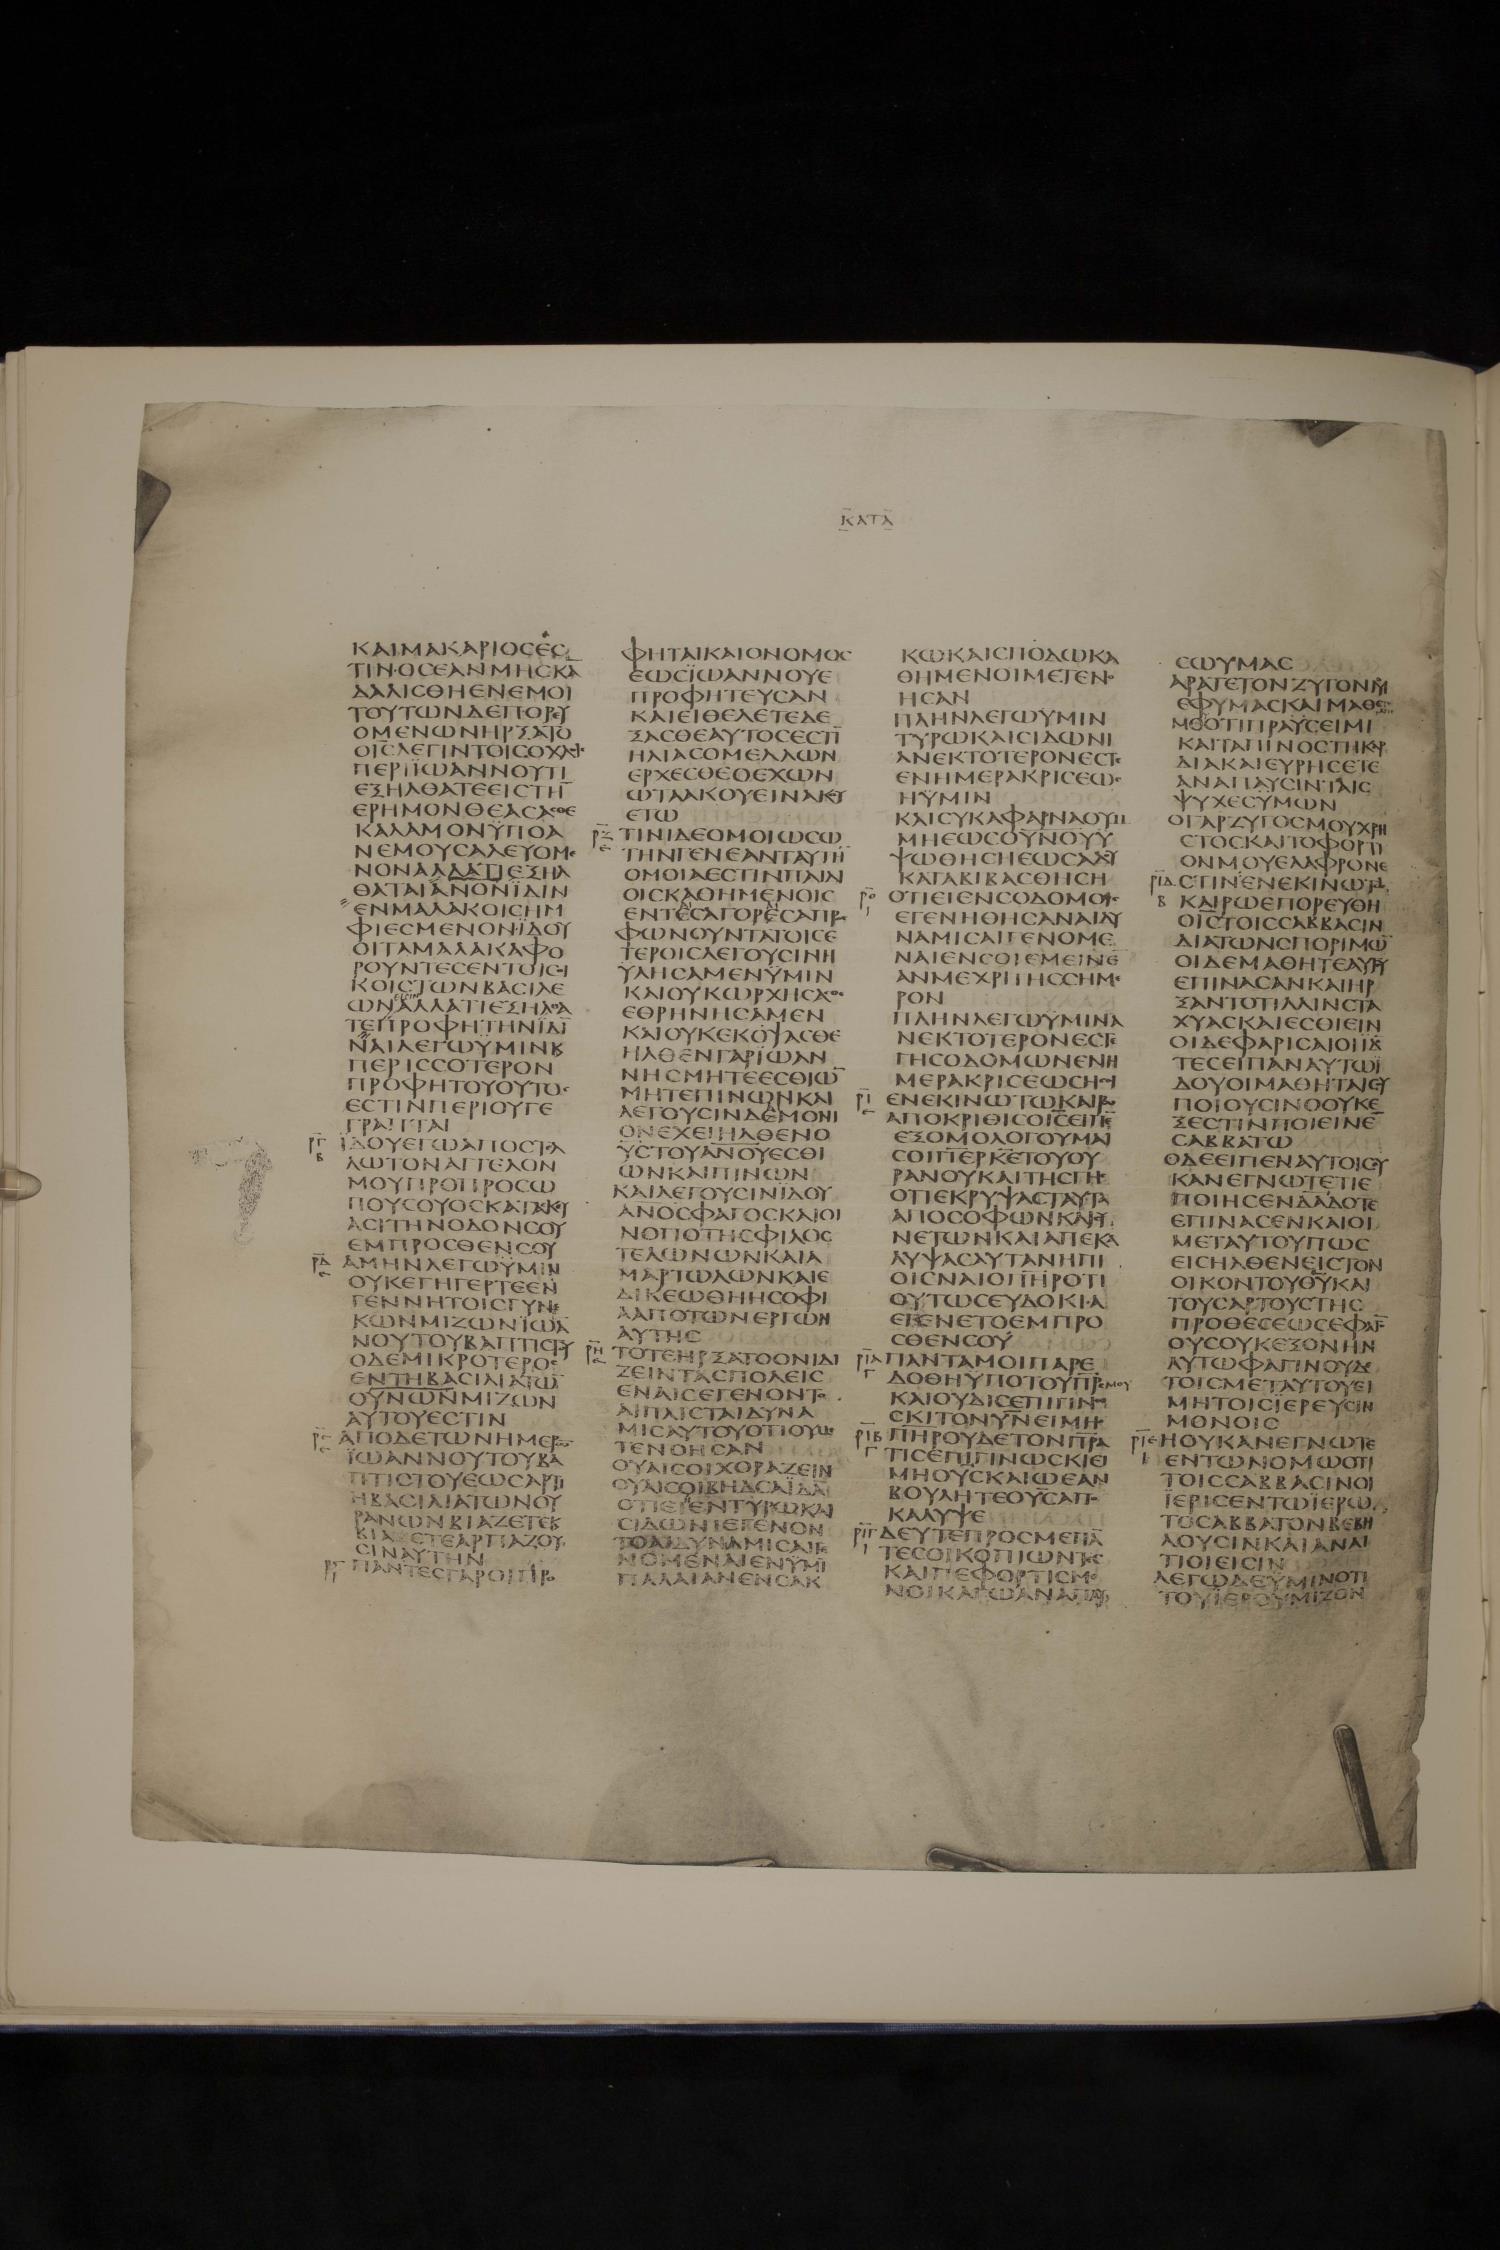 ΚΑΤΑ
ΚΑΙΜΑΚΑΡΙΟϹΕϹ
ΤΙΝΟϹΕΑΝΜΗϹΚΑ
ΔΑΛΙϹΘΗΕΝΕΜΟΙ
ΤΟΥΤΩΝΔΕΠΟΡΕΥ
ΟΜΕΝΩΝΗΡΞΑΤΟ
ΟΙϹΛΕΓΙΝΤΟΙϹΟΧΛΟΙϹ
ΠΕΡΙΪΩΑΝΝΟΥΤΙ
ΕΞΗΛΘΑΤΕΕΙϹΤΗ
ΕΡΗΜΟΝΘΕΑϹΑϹΘΕ
ΚΑΛΑΜΟΝΫΠΟΑ
ΝΕΜΟΥϹΑΛΕΥΟΜΕ
ΝΟΝΑΛΛΑΤΙΕΞΗΛ
ΘΑΤΑΙΑΝΟΝΪΔΙΝ
ΕΝΜΑΛΑΚΟΙϹΗΜ
ΦΙΕϹΜΕΝΟΝΪΔΟΥ
ΟΙΤΑΜΑΛΑΚΑΦΟ
ΡΟΥΝΤΕϹΕΝΤΟΙϹΟΙ
ΚΟΙϹΤΩΝΒΑϹΙΛΕ
ΩΝΑΛΛΑΤΙΕΞΗΛΘΑ
ΤΕΠΡΟΦΗΤΗΝΪΔΙ
ΝΑΙΛΕΓΩΫΜΙΝΚ
ΠΕΡΙϹϹΟΤΕΡΟΝ
ΠΡΟΦΗΤΟΥΟΥΤΟϹ
ΕϹΤΙΝΠΕΡΙΟΥΓΕ
ΓΡΑΠΤΑΙ
ΪΔΟΥΕΓΩΑΠΟϹΤΕΛ
ΛΩΤΟΝΑΓΓΕΛΟΝ
ΜΟΥΠΡΟΠΡΟϹΩ
ΠΟΥϹΟΥΟϹΚΑΤΑΚΕΥ
ΑϹΙΤΗΝΟΔΟΝϹΟΥ
ΕΜΠΡΟϹΘΕΝϹΟΥ
ΑΜΗΝΛΕΓΩΫΜΙΝ
ΟΥΚΕΓΗΓΕΡΤΕΕΝ
ΓΕΝΝΗΤΟΙϹΓΥΝΑΙ
ΚΩΝΜΙΖΩΝΪΩΑ
ΝΟΥΤΟΥΒΑΠΤΙϹΤΟΥ
ΟΔΕΜΙΚΡΟΤΕΡΟϹ
ΕΝΤΗΒΑϹΙΛΙΑΤΩ
ΟΥΝΩΝΜΙΖΩΝ
ΑΥΤΟΥΕϹΤΙΝ
ΑΠΟΔΕΤΩΝΗΜΕΡΩ
ΪΩΑΝΝΟΥΤΟΥΒΑ
ΠΤΙϹΤΟΥΕΩϹΑΡΤΙ
ΗΒΑϹΙΛΙΑΤΩΝΟΥ
ΡΑΝΩΝΒΙΑΖΕΤΕΚ
ΒΙΑϹΤΕΑΡΠΑΖΟΥ
ϹΙΝΑΥΤΗΝ
ΠΑΝΤΕϹΓΑΡΟΙΠΡΟ
ΦΗΤΑΙΚΑΙΟΝΟΜΟϹ
ΕΩϹΪΩΑΝΝΟΥΕ
ΠΡΟΦΗΤΕΥϹΑΝ
ΚΑΙΕΙΘΕΛΕΤΕΔΕ
ΞΑϹΘΕΑΥΤΟϹΕϹΤΙ
ΗΛΙΑϹΟΜΕΛΛΩΝ
ΕΡΧΕϹΘΕΟΕΧΩΝ
ΩΤΑΑΚΟΥΕΙΝΑΚΟΥ
ΕΤΩ
ΤΙΝΙΔΕΟΜΟΙΩϹΩ
ΤΗΝΓΕΝΕΑΝΤΑΥΤΗ
ΟΜΟΙΑΕϹΤΙΝΠΑΙΔΙ
ΟΙϹΚΑΘΗΜΕΝΟΙϹ
ΕΝΤΕϹΑΓΟΡΕϹΑΠΡΟϹ
ΦΩΝΟΥΝΤΑΤΟΙϹΕ
ΤΕΡΟΙϹΛΕΓΟΥϹΙΝΗ
ΥΛΗϹΑΜΕΝΫΜΙΝ
ΚΑΙΟΥΚΩΡΧΗϹΑϹΘΕ
ΕΘΡΗΝΗϹΑΜΕΝ
ΚΑΙΟΥΚΕΚΟΨΑϹΘΕ
ΗΛΘΕΝΓΑΡΪΩΑΝ
ΝΗϹΜΗΤΕΕϹΘΙΩ
ΜΗΤΕΠΙΝΩΝΚΑΙ
ΛΕΓΟΥϹΙΝΔΕΜΟΝΙ
ΟΝΕΧΕΙΗΛΘΕΝΟ
ΥϹΤΟΥΑΝΟΥΕϹΘΙ
ΩΝΚΑΙΠΙΝΩΝ
ΚΑΙΛΕΓΟΥϹΙΝΪΔΟΥ
ΑΝΟϹΦΑΓΟϹΚΑΙΟΙ
ΝΟΠΟΤΗϹΦΙΛΟϹ
ΤΕΛΩΝΩΝΚΑΙΑ
ΜΑΡΤΩΛΩΝΚΑΙΕ
ΔΙΚΕΩΘΗΗϹΟΦΙ
ΑΑΠΟΤΩΝΕΡΓΩΝ
ΑΥΤΗϹ
ΤΟΤΕΗΡΞΑΤΟΟΝΙΔΙ
ΖΕΙΝΤΑϹΠΟΛΕΙϹ
ΕΝΑΙϹΕΓΕΝΟΝΤΟ
ΑΙΠΛΙϹΤΑΙΔΥΝΑ
ΜΙϹΑΥΤΟΥΟΤΙΟΥΜΕ
ΤΕΝΟΗϹΑΝ
ΟΥΑΙϹΟΙΧΟΡΑΖΕΙΝ
ΟΥΑΙϹΟΙΒΗΔϹΑΪΔΑ
ΟΤΙΕΙΕΝΤΥΡΩΚΑΙ
ϹΙΔΩΝΙΕΓΕΝΟΝ
ΤΟΑΙΔΥΝΑΜΙϹΑΙΓΕ
ΝΟΜΕΝΑΙΕΝΫΜΙ
ΠΑΛΑΙΑΝΕΝϹΑΚ
ΚΩΚΑΙϹΠΟΔΩΚΑ
ΘΗΜΕΝΟΙΜΕΤΕΝΟ
ΗϹΑΝ
ΠΛΗΝΛΕΓΩΫΜΙΝ
ΤΥΡΩΚΑΙϹΙΔΩΝΙ
ΑΝΕΚΤΟΤΕΡΟΝΕϹΤΕ
ΕΝΗΜΕΡΑΚΡΙϹΕΩϹ
ΗΫΜΙΝ
ΚΑΙϹΥΚΑΦΑΡΝΑΟΥΜ
ΜΗΕΩϹΟΥΝΟΥΥ
ΨΩΘΗϹΗΕΩϹΑΔΟΥ
ΚΑΤΑΒΙΒΑϹΘΗϹΗ
ΟΤΙΕΙΕΝϹΟΔΟΜΟΙϹ
ΕΓΕΝΗΘΗϹΑΝΑΙΔΥ
ΝΑΜΙϹΑΙΓΕΝΟΜΕ
ΝΑΙΕΝϹΟΙΕΜΕΙΝΕ
ΑΝΜΕΧΡΙΤΗϹϹΗΜΕ
ΡΟΝ
ΠΛΗΝΛΕΓΩΫΜΙΝΑ
ΝΕΚΤΟΤΕΡΟΝΕϹΤΕ
ΓΗϹΟΔΟΜΩΝΕΝΗ
ΜΕΡΑΚΡΙϹΕΩϹΗϹΟΙ
ΕΝΕΚΙΝΩΤΩΚΑΙΡΩ
ΑΠΟΚΡΙΘΙϹΟΙϹΕΙΠΕ
ΕΞΟΜΟΛΟΓΟΥΜΑΙ
ϹΟΙΠΕΡΚΕΤΟΥΟΥ
ΡΑΝΟΥΚΑΙΤΗϹΓΗϹ
ΟΤΙΕΚΡΥΨΑϹΤΑΥΤΑ
ΑΠΟϹΟΦΩΝΚΑΙϹΥ
ΝΕΤΩΝΚΑΙΑΠΕΚΑ
ΛΥΨΑϹΑΥΤΑΝΗΠΙ
ΟΙϹΝΑΙΟΠΗΡΟΤΙ
ΟΥΤΩϹΕΥΔΟΚΙΑ
ΕΓΕΝΕΤΟΕΜΠΡΟ
ϹΘΕΝϹΟΥ
ΠΑΝΤΑΜΟΙΠΑΡΕ
ΔΟΘΗΫΠΟΤΟΥΠΡϹΜΟΥ
ΚΑΙΟΥΔΙϹΕΠΙΓΙΝΩ
ϹΚΙΤΟΝΥΝΕΙΜΗΟ
ΠΗΡΟΥΔΕΤΟΝΠΡΑ
ΤΙϹΕΠΙΓΙΝΩϹΚΙΕΙ
ΜΗΟΥϹΚΑΙΩΕΑΝ
ΒΟΥΛΗΤΕΟΥϹΑΠΟ
ΚΑΛΥΨΕ
ΔΕΥΤΕΠΡΟϹΜΕΠΑ
ΤΕϹΟΙΚΟΠΙΩΝΤΕϹ
ΚΑΙΠΕΦΟΡΤΙϹΜΕ
ΝΟΙΚΑΓΩΑΝΑΠΑΥ
ϹΩΥΜΑϹ
ΑΡΑΤΕΤΟΝΖΥΓΟΝΜΟΥ
ΕΦΥΜΑϹΚΑΙΜΑΘΕΤΕ
ΜΘΟΤΙΠΡΑΫϹΕΙΜΙ
ΚΑΙΤΑΠΙΝΟϹΤΗΚΑΡ
ΔΙΑΚΑΙΕΥΡΗϹΕΤΕ
ΑΝΑΠΑΥϹΙΝΤΑΙϹ
ΨΥΧΕϹΥΜΩΝ
ΟΓΑΡΖΥΓΟϹΜΟΥΧΡΗ
ϹΤΟϹΚΑΙΤΟΦΟΡΤΙ
ΟΝΜΟΥΕΛΑΦΡΟΝΕ
ϹΤΙΝΕΝΕΚΙΝΩΤΩ
ΚΑΙΡΩΕΠΟΡΕΥΘΗ
ΟΙϹΤΟΙϹϹΑΒΒΑϹΙΝ
ΔΙΑΤΩΝϹΠΟΡΙΜΩ
ΟΙΔΕΜΑΘΗΤΕΑΥΤΟΥ
ΕΠΙΝΑϹΑΝΚΑΙΗΡ
ΞΑΝΤΟΤΙΛΛΙΝϹΤΑ
ΧΥΑϹΚΑΙΕϹΘΙΕΙΝ
ΟΙΔΕΦΑΡΙϹΑΙΟΙΪ
ΤΕϹΕΙΠΑΝΑΥΤΩΪ
ΔΟΥΟΙΜΑΘΗΤΑΙϹΟΥ
ΠΟΙΟΥϹΙΝΟΟΥΚΕ
ΞΕϹΤΙΝΠΟΙΕΙΝΕ
ϹΑΒΒΑΤΩ
ΟΔΕΕΙΠΕΝΑΥΤΟΙϹΟΥ
ΚΑΝΕΓΝΩΤΕΤΙΕ
ΠΟΙΗϹΕΝΔΑΔΟΤΕ
ΕΠΙΝΑϹΕΝΚΑΙΟΙ
ΜΕΤΑΥΤΟΥΠΩϹ
ΕΙϹΗΛΘΕΝΕΙϹΤΟΝ
ΟΙΚΟΝΤΟΥΘΥΚΑΙ
ΤΟΥϹΑΡΤΟΥϹΤΗϹ
ΠΡΟΘΕϹΕΩϹΕΦΑΓΟ
ΟΥϹΟΥΚΕΞΟΝΗΝ
ΑΥΤΩΦΑΓΙΝΟΥΔΕ
ΤΟΙϹΜΕΤΑΥΤΟΥΕΙ
ΜΗΤΟΙϹΪΕΡΕΥϹΙΝ
ΜΟΝΟΙϹ
ΗΟΥΚΑΝΕΓΝΩΤΕ
ΕΝΤΩΝΟΜΩΟΤΙ
ΤΟΙϹϹΑΒΒΑϹΙΝΟΙ
ΪΕΡΙϹΕΝΤΩΪΕΡΩ
ΤΟϹΑΒΒΑΤΟΝΒΕΒΗ
ΛΟΥϹΙΝΚΑΙΑΝΑΙ
ΤΙΟΙΕΙϹΙΝ
ΛΕΓΩΔΕΫΜΙΝΟΤΙ
ΤΟΥΪΕΡΟΥΜΙΖΟΝ